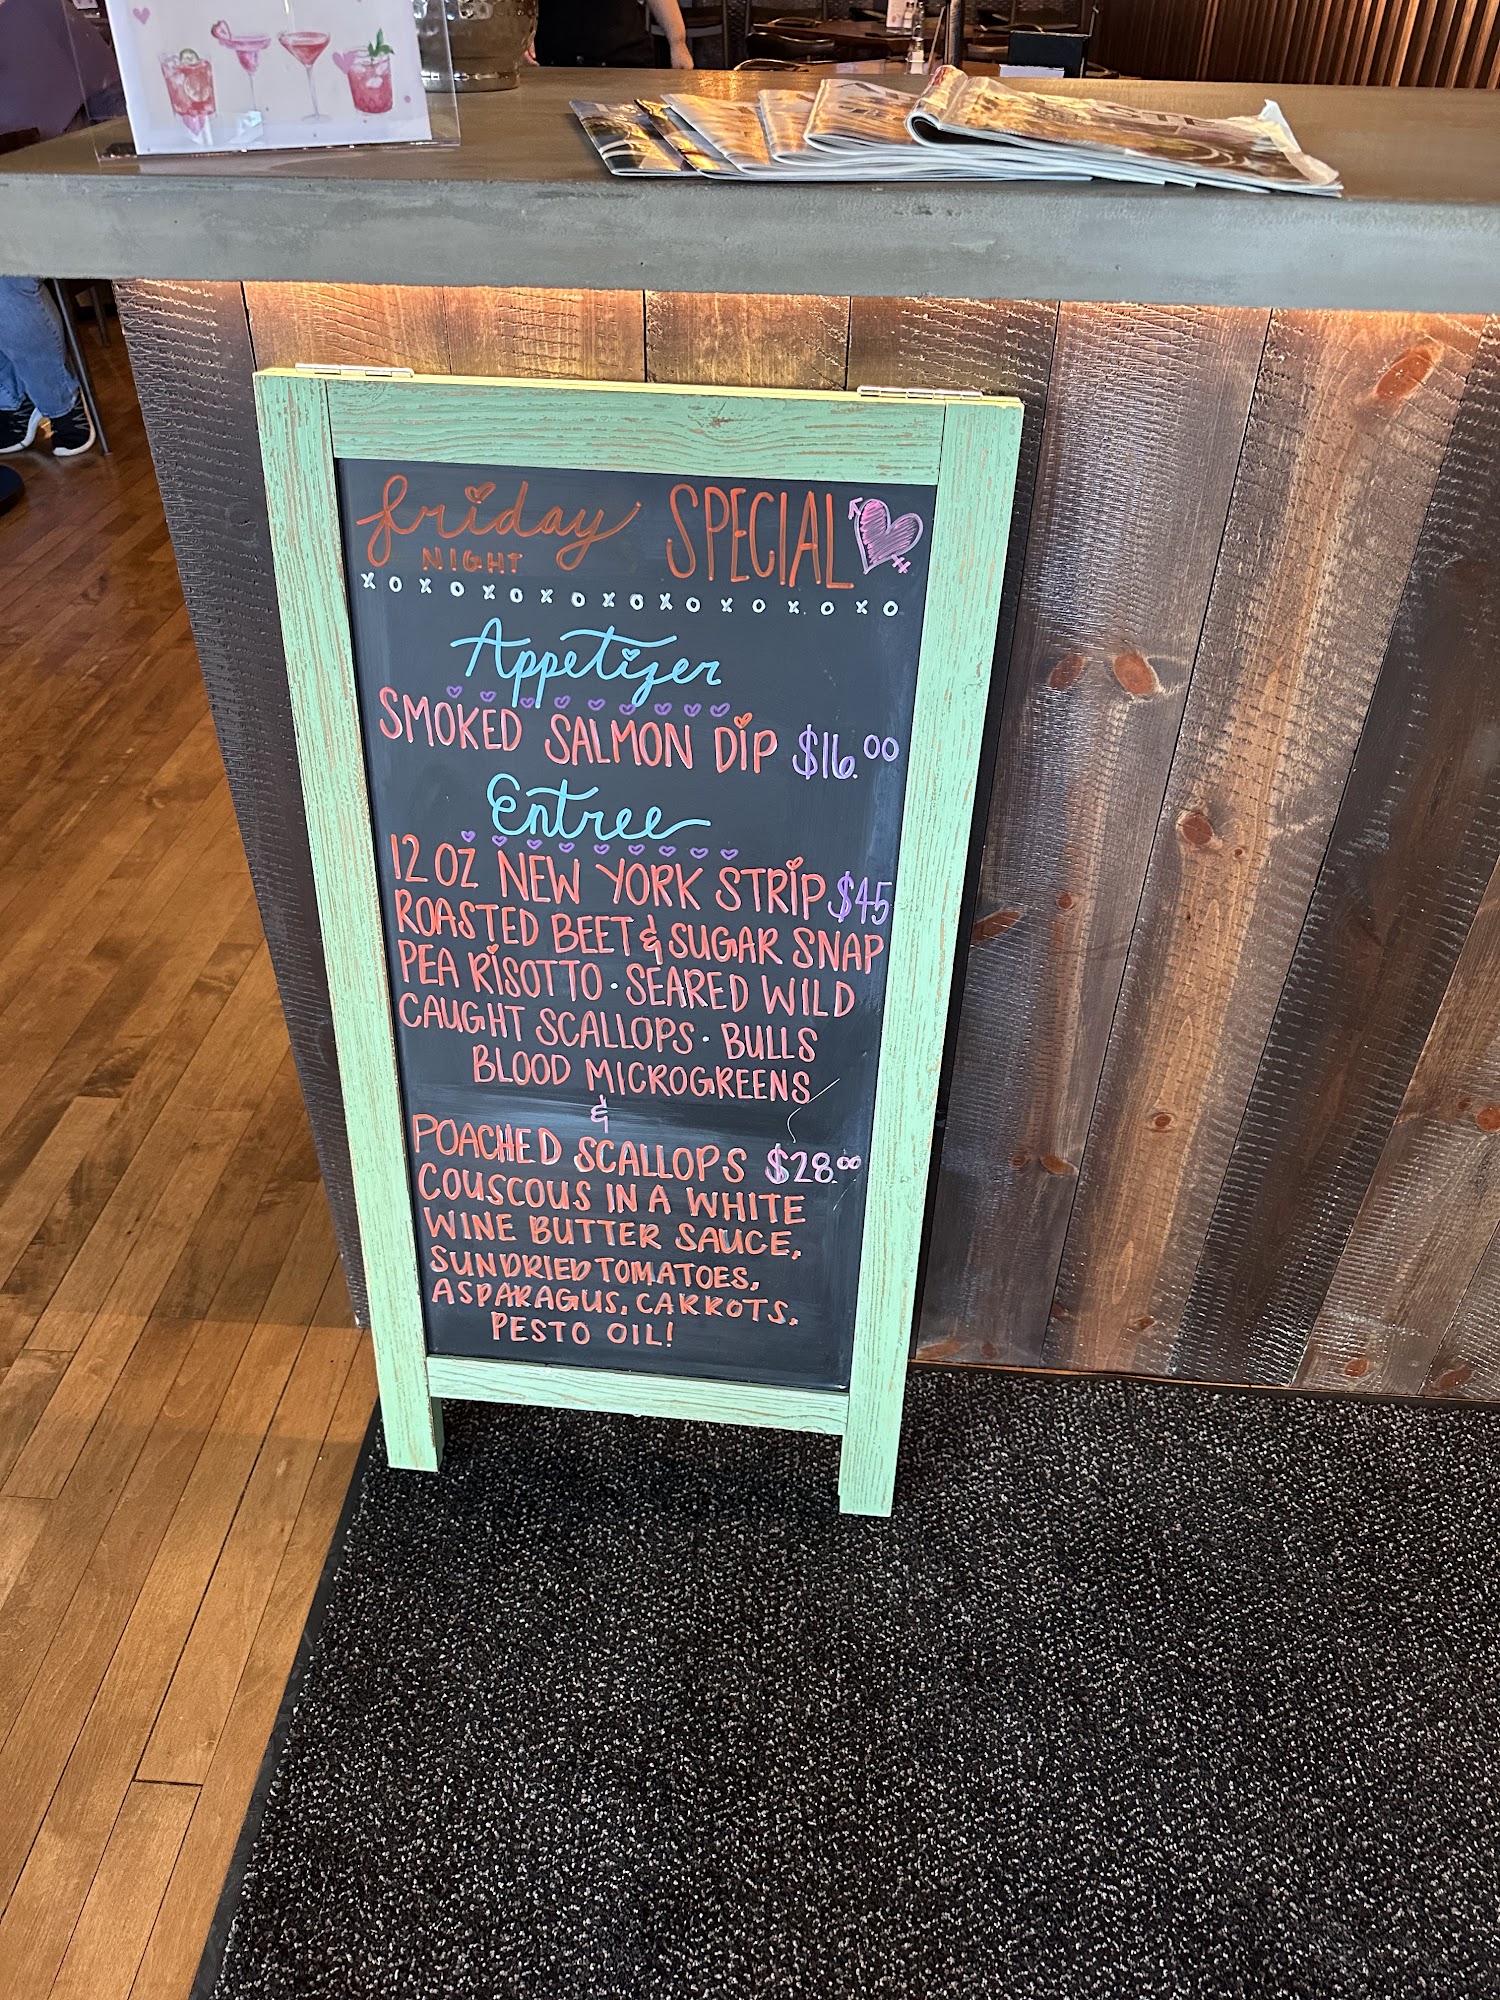 friday SPECIAL
NIGHT
xoxoxoxoxoxoxoxoxo
Appetizer
SMOKED SALMON DIP $16.00
Entree
12 OZ NEW YORK STRIP $45
ROASTED BEET & SUGAR SNAP
PEA RISOTTO · SEARED WILD
CAUGHT SCALLOPS · BULLS
BLOOD MICROGREENS
&
POACHED SCALLOPS $28.00
COUSCOUS IN A WHITE
WINE BUTTER SAUCE,
SUNDRIED TOMATOES,
ASPARAGUS, CARROTS,
PESTO OIL!